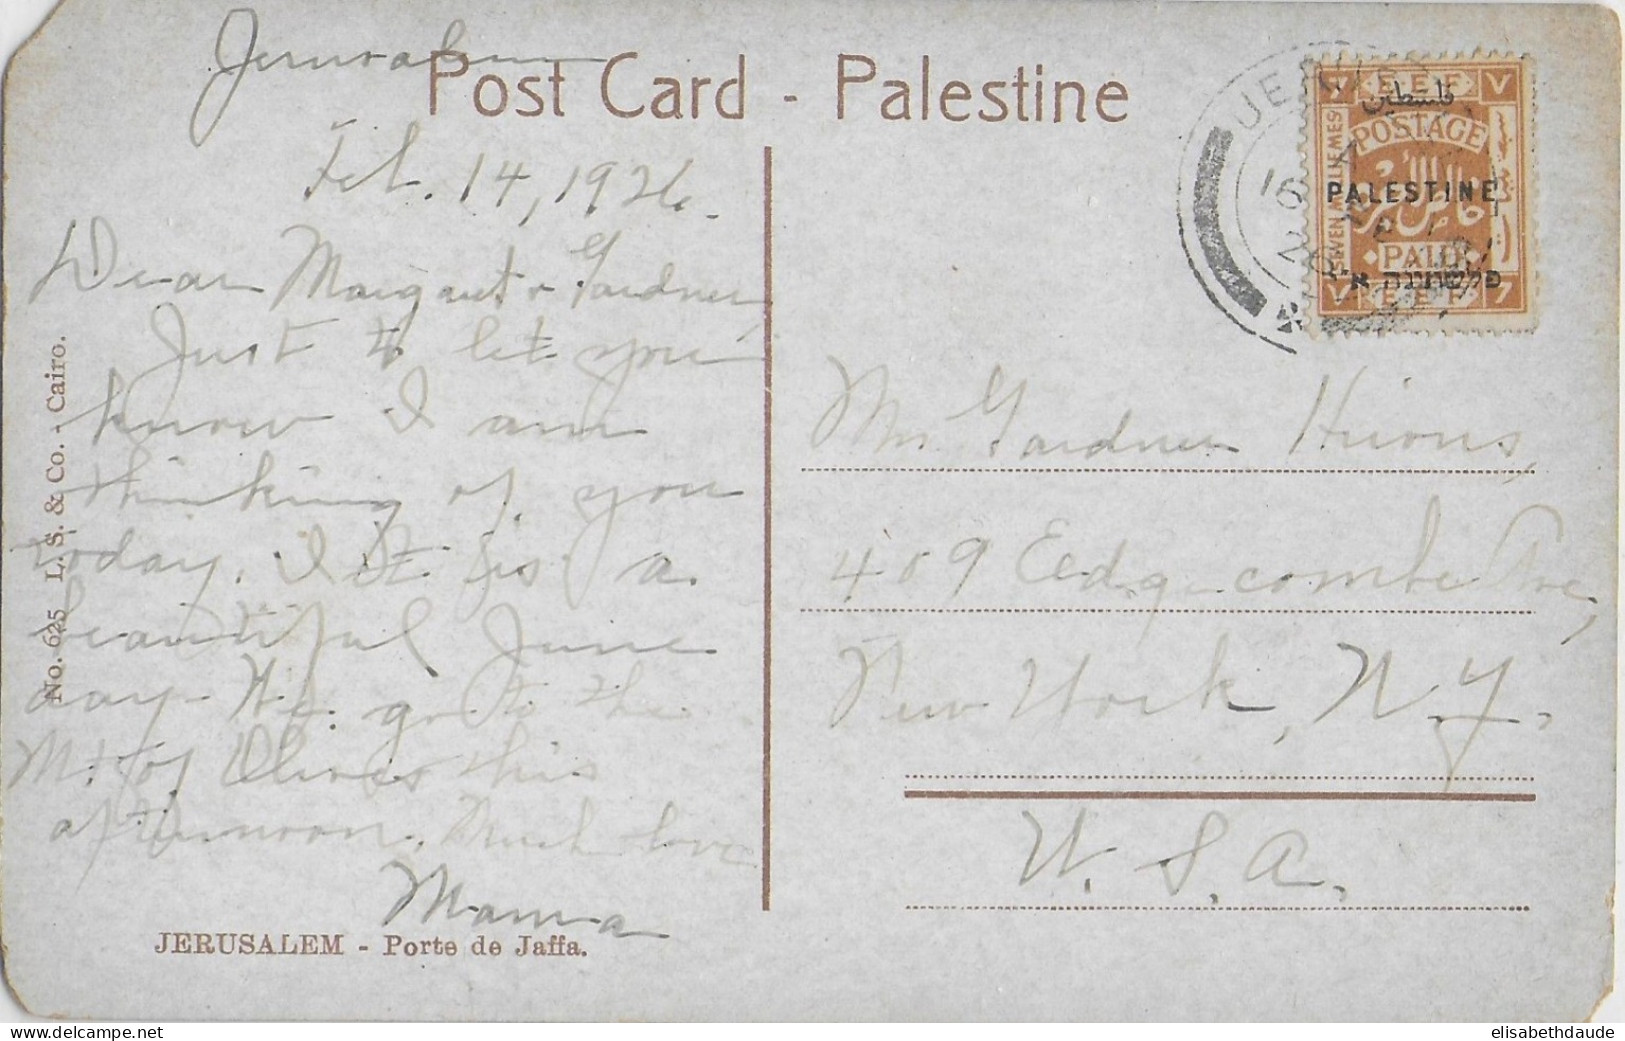 Post Card - Palestine
Jerusalem
Feb. 14, 1926.
Dear Margaret & Gardner
Just to let you
know I am
thinking of you
today. It is a
beautiful June
day - We go to the
Mt. of Olives this
afternoon. Much love
Mama
No. 625 L. S. & Co. - Cairo.
JERUSALEM - Porte de Jaffa.
E.E.F
فلسطين
POSTAGE
SEVEN MILLIEMES
PALESTINE
PAID
פלשתינה א״י
E.E.F
Mr. Gardner Hirons,
409 Edgecombe Ave,
New York, N.Y.
U. S. A.
delcampe.net
elisabethdaude